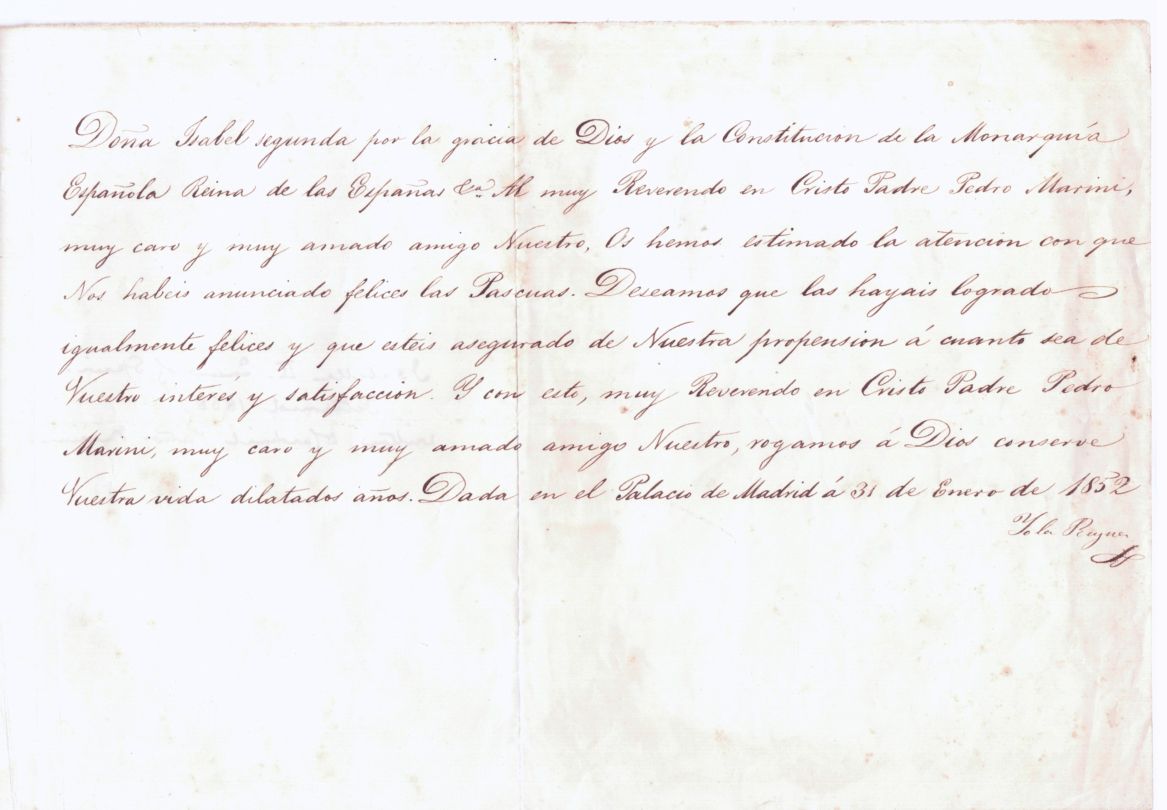 Doña Isabel segunda por la gracia de Dios y la Constitucion de la Monarquía
Española Reina de las Españas &ª. Al muy Reverendo en Cristo Padre Pedro Marini,
muy caro y muy amado amigo Nuestro, Os hemos estimado la atencion con que
Nos habeis anunciado felices las Pascuas. Deseamos que las hayais logrado
igualmente felices y que esteis asegurado de Nuestra propension á cuanto sea de
Vuestro interés y satisfaccion. Y con esto, muy Reverendo en Cristo Padre Pedro
Marini, muy caro y muy amado amigo Nuestro, rogamos á Dios conserve
Vuestra vida dilatados años. Dada en el Palacio de Madrid á 31 de Enero de 1852
Yo la Reyna